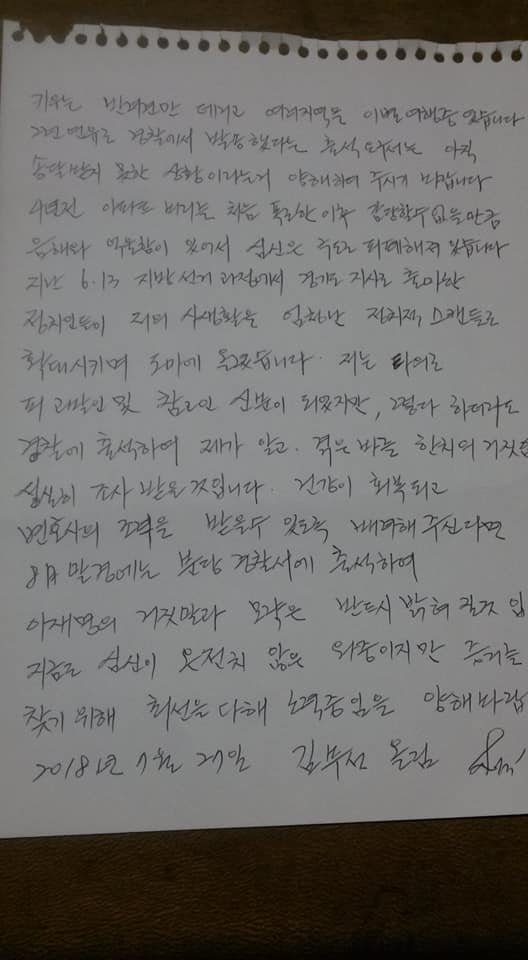 키우는 반려견만 데리고 여러지역을 이별여행중 있습니다
그런 연유로 경찰에서 발송했다는 출석요구서는 아직
송달받지 못한 상황이라는거 양해하여 주시기 바랍니다
4년전 아파트 비리를 처음 폭로한 이후 감당할수 없을만큼
음해와 억울함이 있어서 심신은 극도로 피폐해져 있습니다
지난 6.13 지방선거 과정에서 경기도지사로 출마한
정치인들이 저의 사생활을 엄청난 정치적 스캔들로
확대시키며 도마에 올렸습니다. 저는 타의로
피고발인 및 참고인 신분이 되었지만, 그렇다 하더라도
경찰에 출석하여 제가 알고, 겪은 바를 한치의 거짓
성실히 조사 받을 것입니다. 건강이 회복되고
변호사의 조력을 받을수 있도록 배려해 주신다면
8月 말경에는 분당 경찰서에 출석하여
이재명의 거짓말과 모략은 반드시 밝혀질것입
지금도 심신이 온전치 않은 와중이지만 증거를
찾기 위해 최선을 다해 노력중임을 양해바랍
2018년 7월 27일 김부선 올림